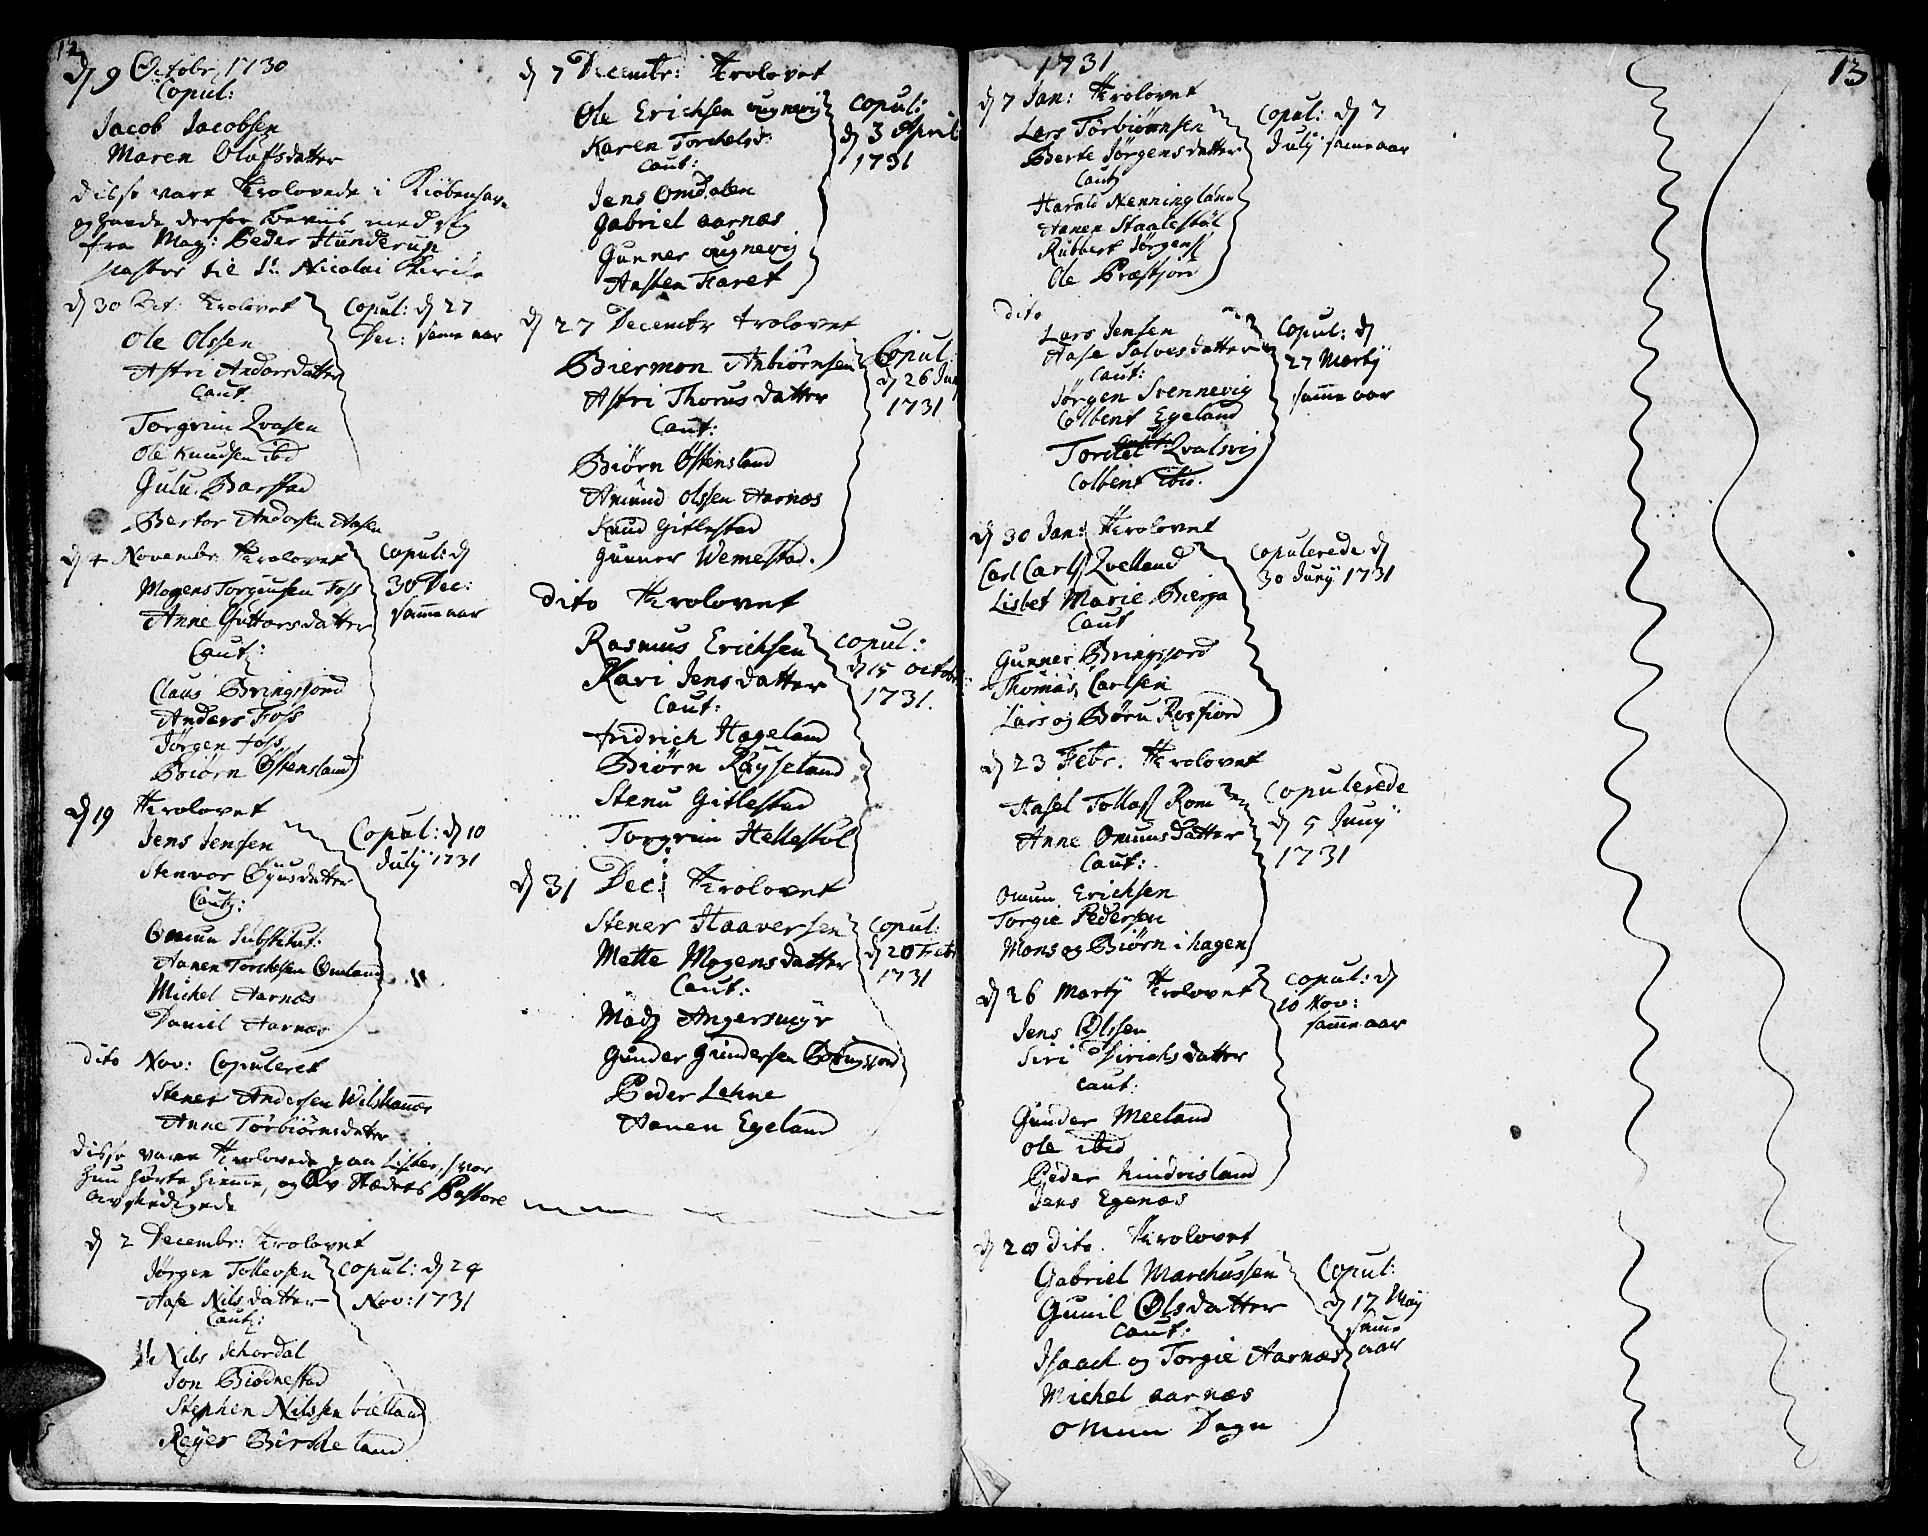 12
d 9 Octobr 1730
Copul:
Jacob Jacobsen
Maren Olufsdatter
disse vare Trolovede i Kiøbenhav
og havde derfor Beviis med sig
fra Mag: Peder Hunderup
pastor til St. Nicolai Kirke
d 30 Oct: Trolovet
Ole Olssen
Astri Andorsdatter
Caut
Torgrim Qvasen
Ole Knudsen ibd
Gulu. Barstad
Bertor Andorsen Aasen
Copul: d 27
Dec: samme aar
d 4 Novembr Trolovet
Mogens Torgiusen Foss
Anne Guttorsdatter
Caut:
Claus Bringsjord
Anders Foss
Jørgen foss
Biørn Østensland
Copul: d
30 Dec:
samme aar
d 19 Trolovet
Jens Jensen
Stenvor Øyusdatter
Caut:
Omun Substitut:
Aanen Torchelsen Omland
Michel Aarnæs
Daniel Aarnæs
Copul: d 10
Julÿ 1731
dito Nov: Copuleret
Stener Andersen
Anne Torbiørnsdatter
disse vare Trolovede paa Lister, hvor
hun hørte hiemme, og av Stædets Pastore
d 2 Decembr: Trolovet
Jørgen Tollevsen
Aase Nilsdatter
Caut:
Nils Schordal
Jon Biødnestad
Stephen Nilssen bielland
Reÿer Birkeland
Copul: d 24
Nov: 1731
d 7 Decemb: Trolovet
Ole Erichsen augnevig
Karen Torchelsd:
Caut:
Jens Omdalen
Gabriel aarnæs
Gunner augnevig
Aasten Faret
Copul:
d 3 April
1731
d 27 Decembr trolovet
Biermon Anbiørnsen
Astri Thorusdatter
Caut:
Biørn Østensland
Amund Olssen Aarnæs
Knud Gitlestad
Gunner Wemestad.
Copul:
d 26 Jun
1731
dito Trolovet
Rasmus Erichsen
Kari Jensdatter
Caut:
fridrich Hageland
Biørn Røÿseland
Stenu Gitlestad
Torgrim Hellestøl
Copul:
d 15 octob
1731.
d 31 Dec: Trolovet
Stener Haaversen
Mette Mogensdatter
Caut:
Madz Angersmÿr
Gunder Gundersen Bringsjord
Peder Lehne
Aanen Egeland
Copul:
d 20 Febr
1731
13
1731
d 7 Jan: Trolovet
Lars Torbiørnsen
Berte Jørgensdatter
Caut
Harald Henningland
Aanen Staalestøl
Rubbert Jørgens
Ole Præstjord
Copul: d 7
Julÿ samme aar
dito
Lars Jensen
Aase Salvesdatter
Caut:
Jørgen Svennevig
Colbent Egeland
Torckel Qvalsvig
Colbent ibid.
Copul: d
27 Martÿ
samme aar
d 30 Jan: Trolovet
Carl Carls Qvelland
Lisbet Marie Bierga
Caut
Gunner Bringsjord
Thomas Carlsen
Lars og Børu Rosfiord
Copulerede d
30 Junÿ 1731
d 23 Febr. Trolovet
Aasel Tollofs Rom
Anne Omunsdatter
Caut:
Omun Erichsen
Torgie Pedersen
Mons og Biørn i hagen
Copulerede
d 5 Junÿ
1731
d 26 Martÿ Trolovet
Jens Olssen
Siri Dirichsdatter
Caut:
Gunder Meeland
Ole ibid
Peder hindrisland
Jens Egenæs
Copul: d
10 Nov:
samme aar
d 28 dito. Trolovet
Gabriel Marchussen
Gunil Olsdatter
Caut:
Isaach og Torgie Aarnæs
Michel aarnæs
Omun Dagu
Copul:
d 17 Maÿ
samme
aar